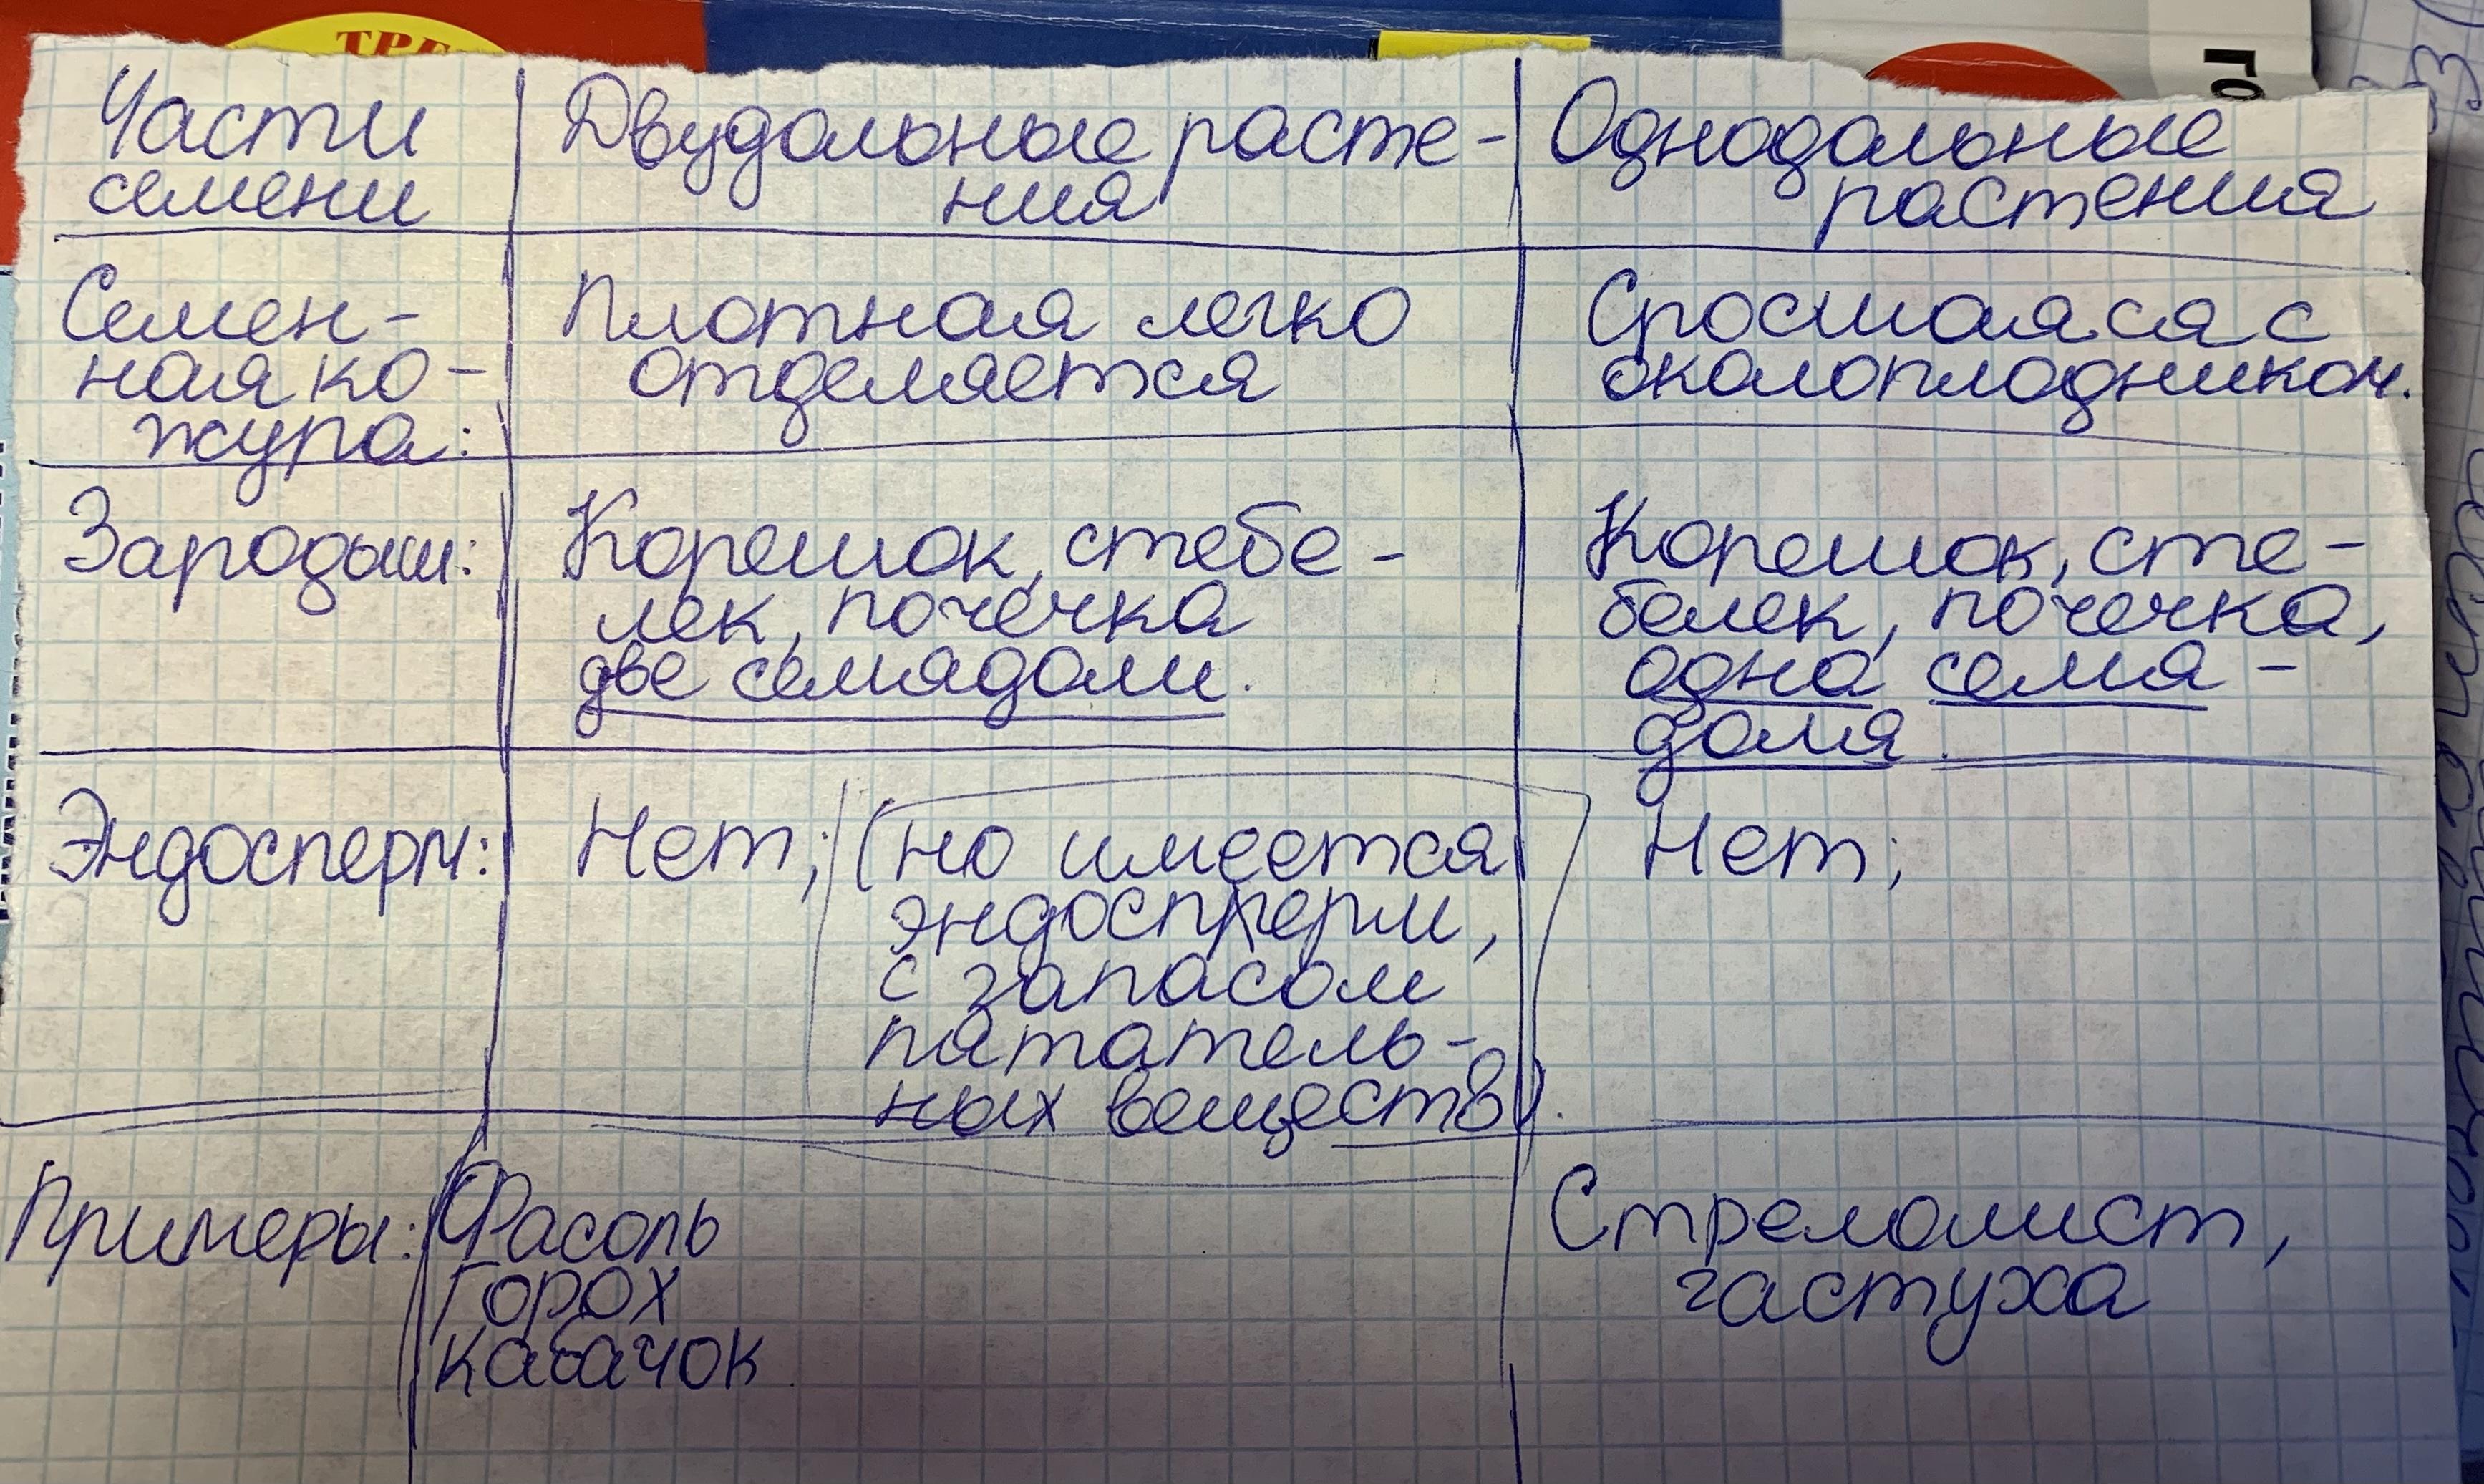 Части
семени
Двудольные расте-
ния
Однодольные
растения
Семен-
ная ко-
жура:
Плотная легко
отделяется
Сросшаяся с
околоплодником.
Зародыш:
Корешок, стебе-
лек, почечка
две семядоли.
Корешок, сте-
белек, почечка,
одна семя-
доля.
Эндосперм:
Нет; (но имеется
эндосперм,
с запасом
пататель-
ных веществ).
Нет;
Примеры:
Фасоль
Горох
кабачок
Стрелолист,
частуха
ТРЕ
ГО